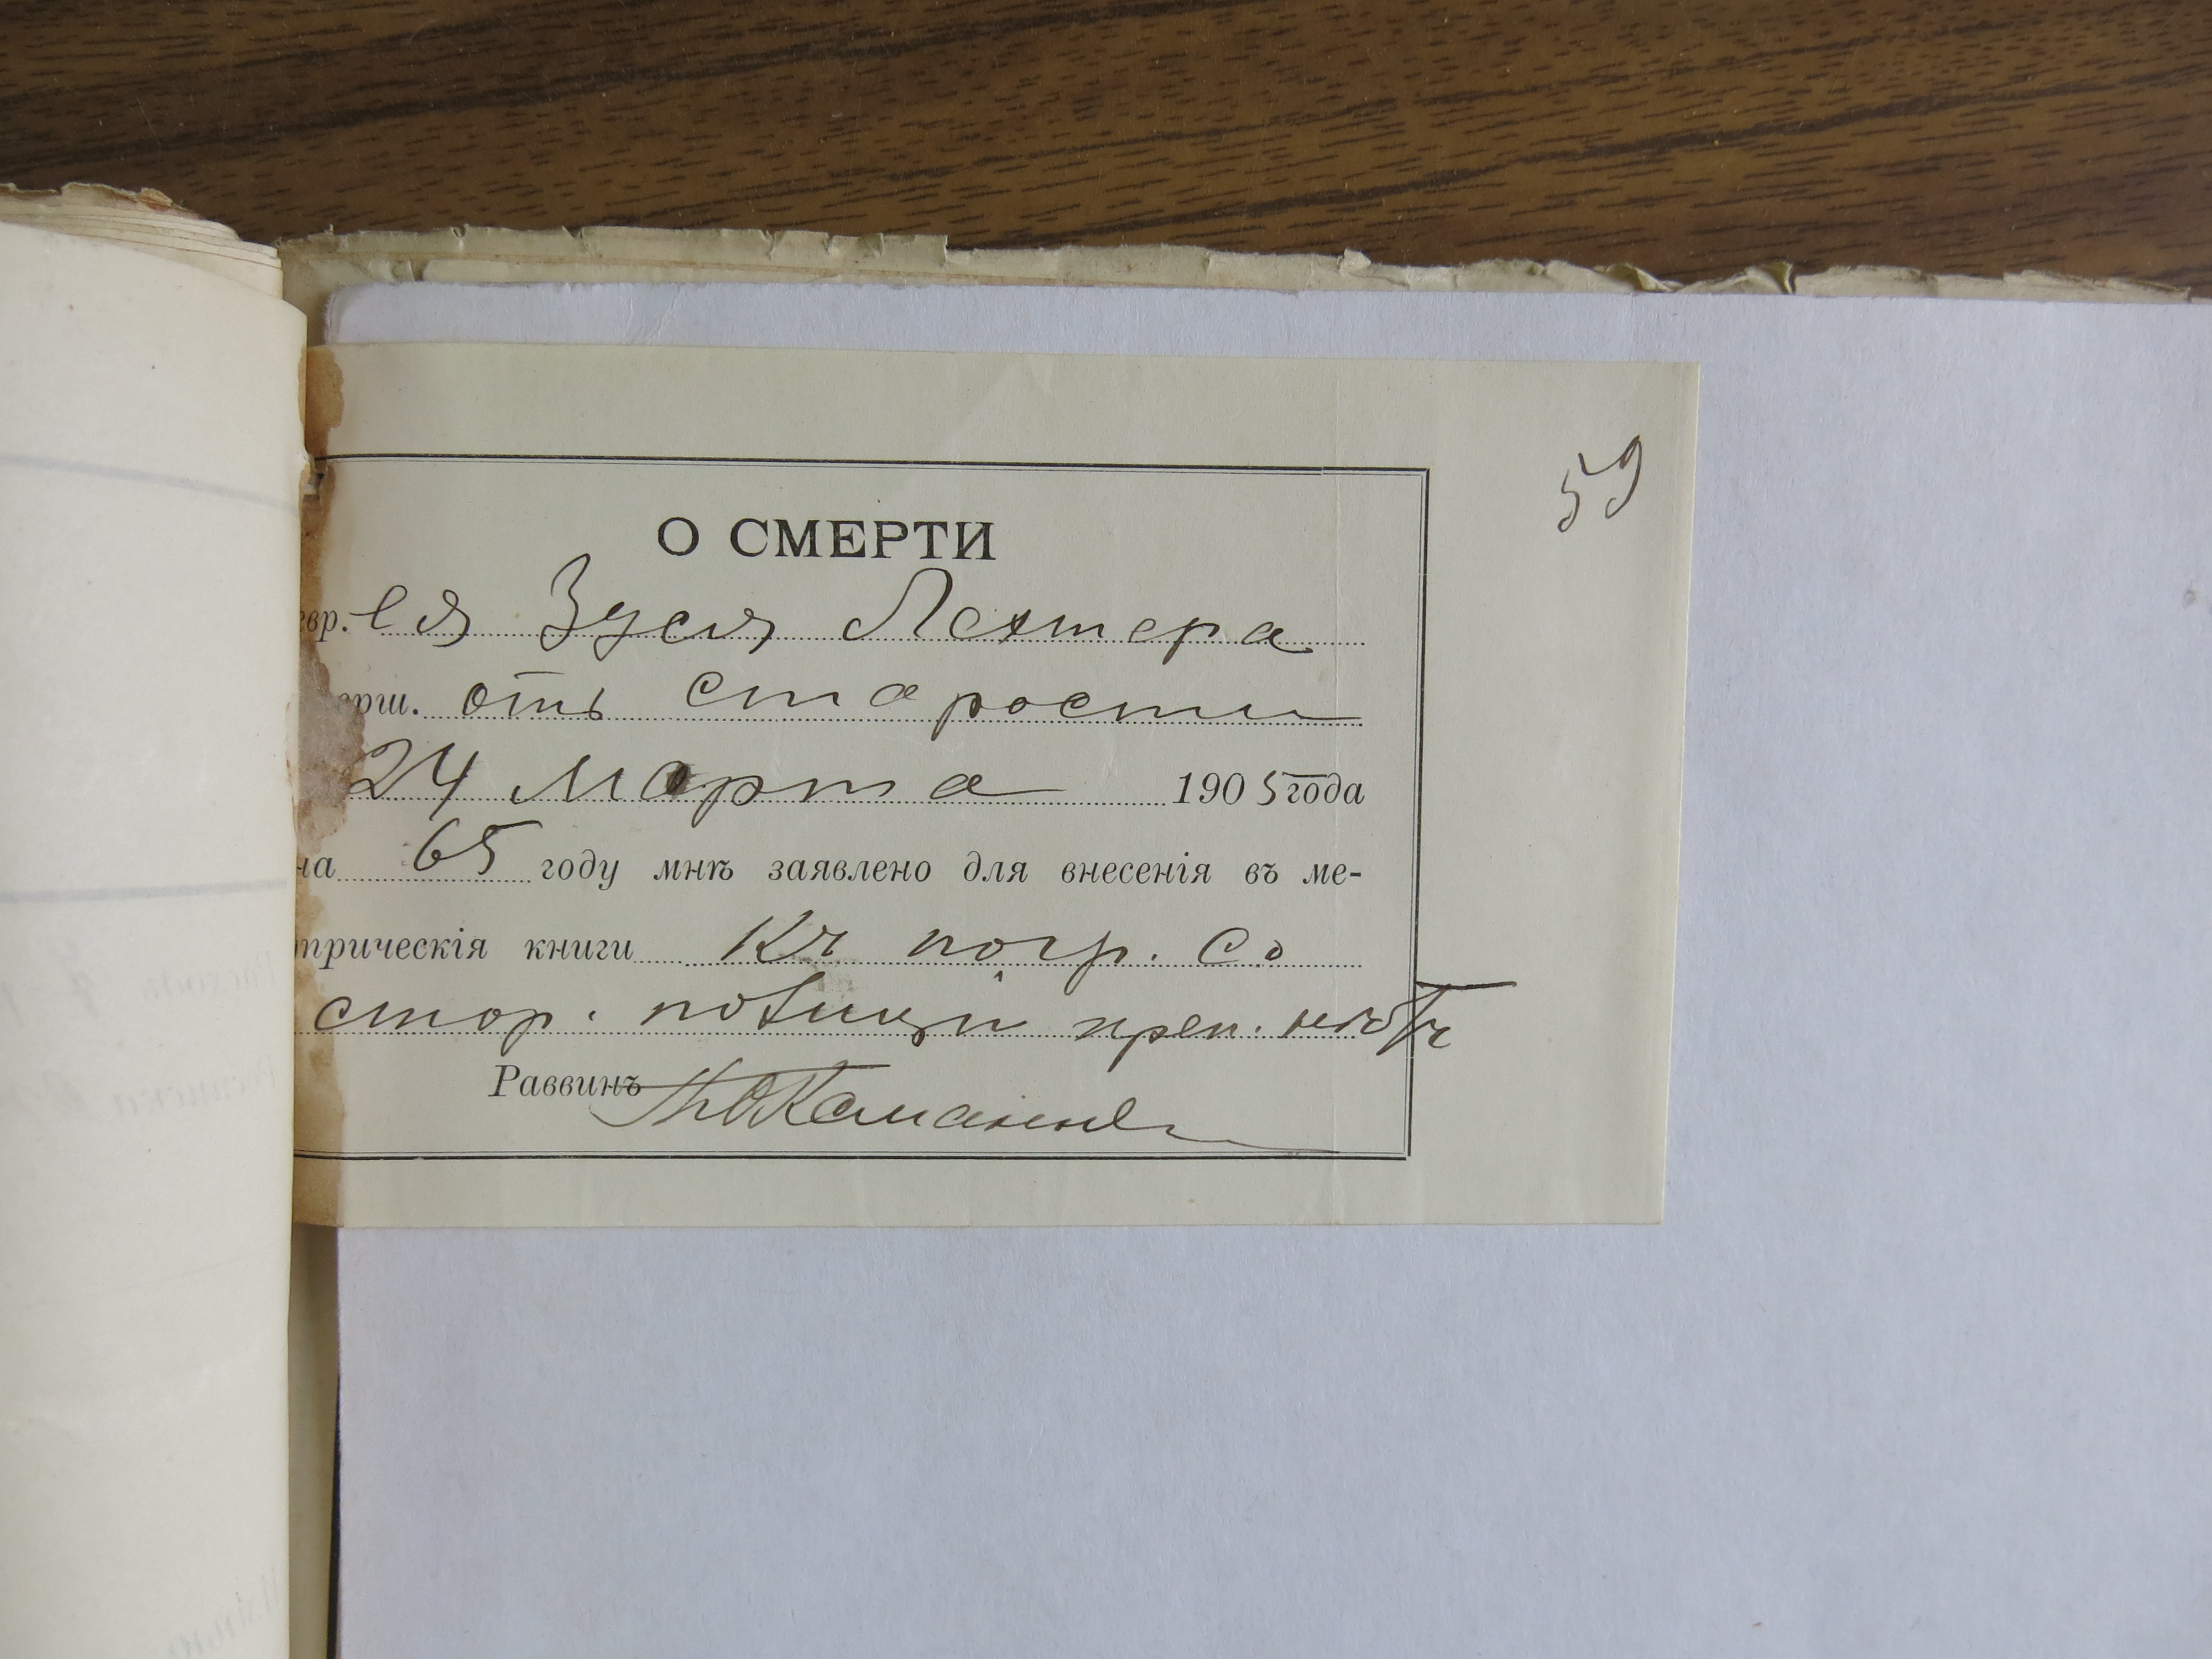 59
О СМЕРТИ
евр. ея Зуся Лехтера
ерш. отъ старости
24 Марта 1905 года
на 65 году мнѣ заявлено для внесенія въ ме-
трическія книги Къ погр. со
стор. поլиціи преп. нѣтъ
Раввинъ